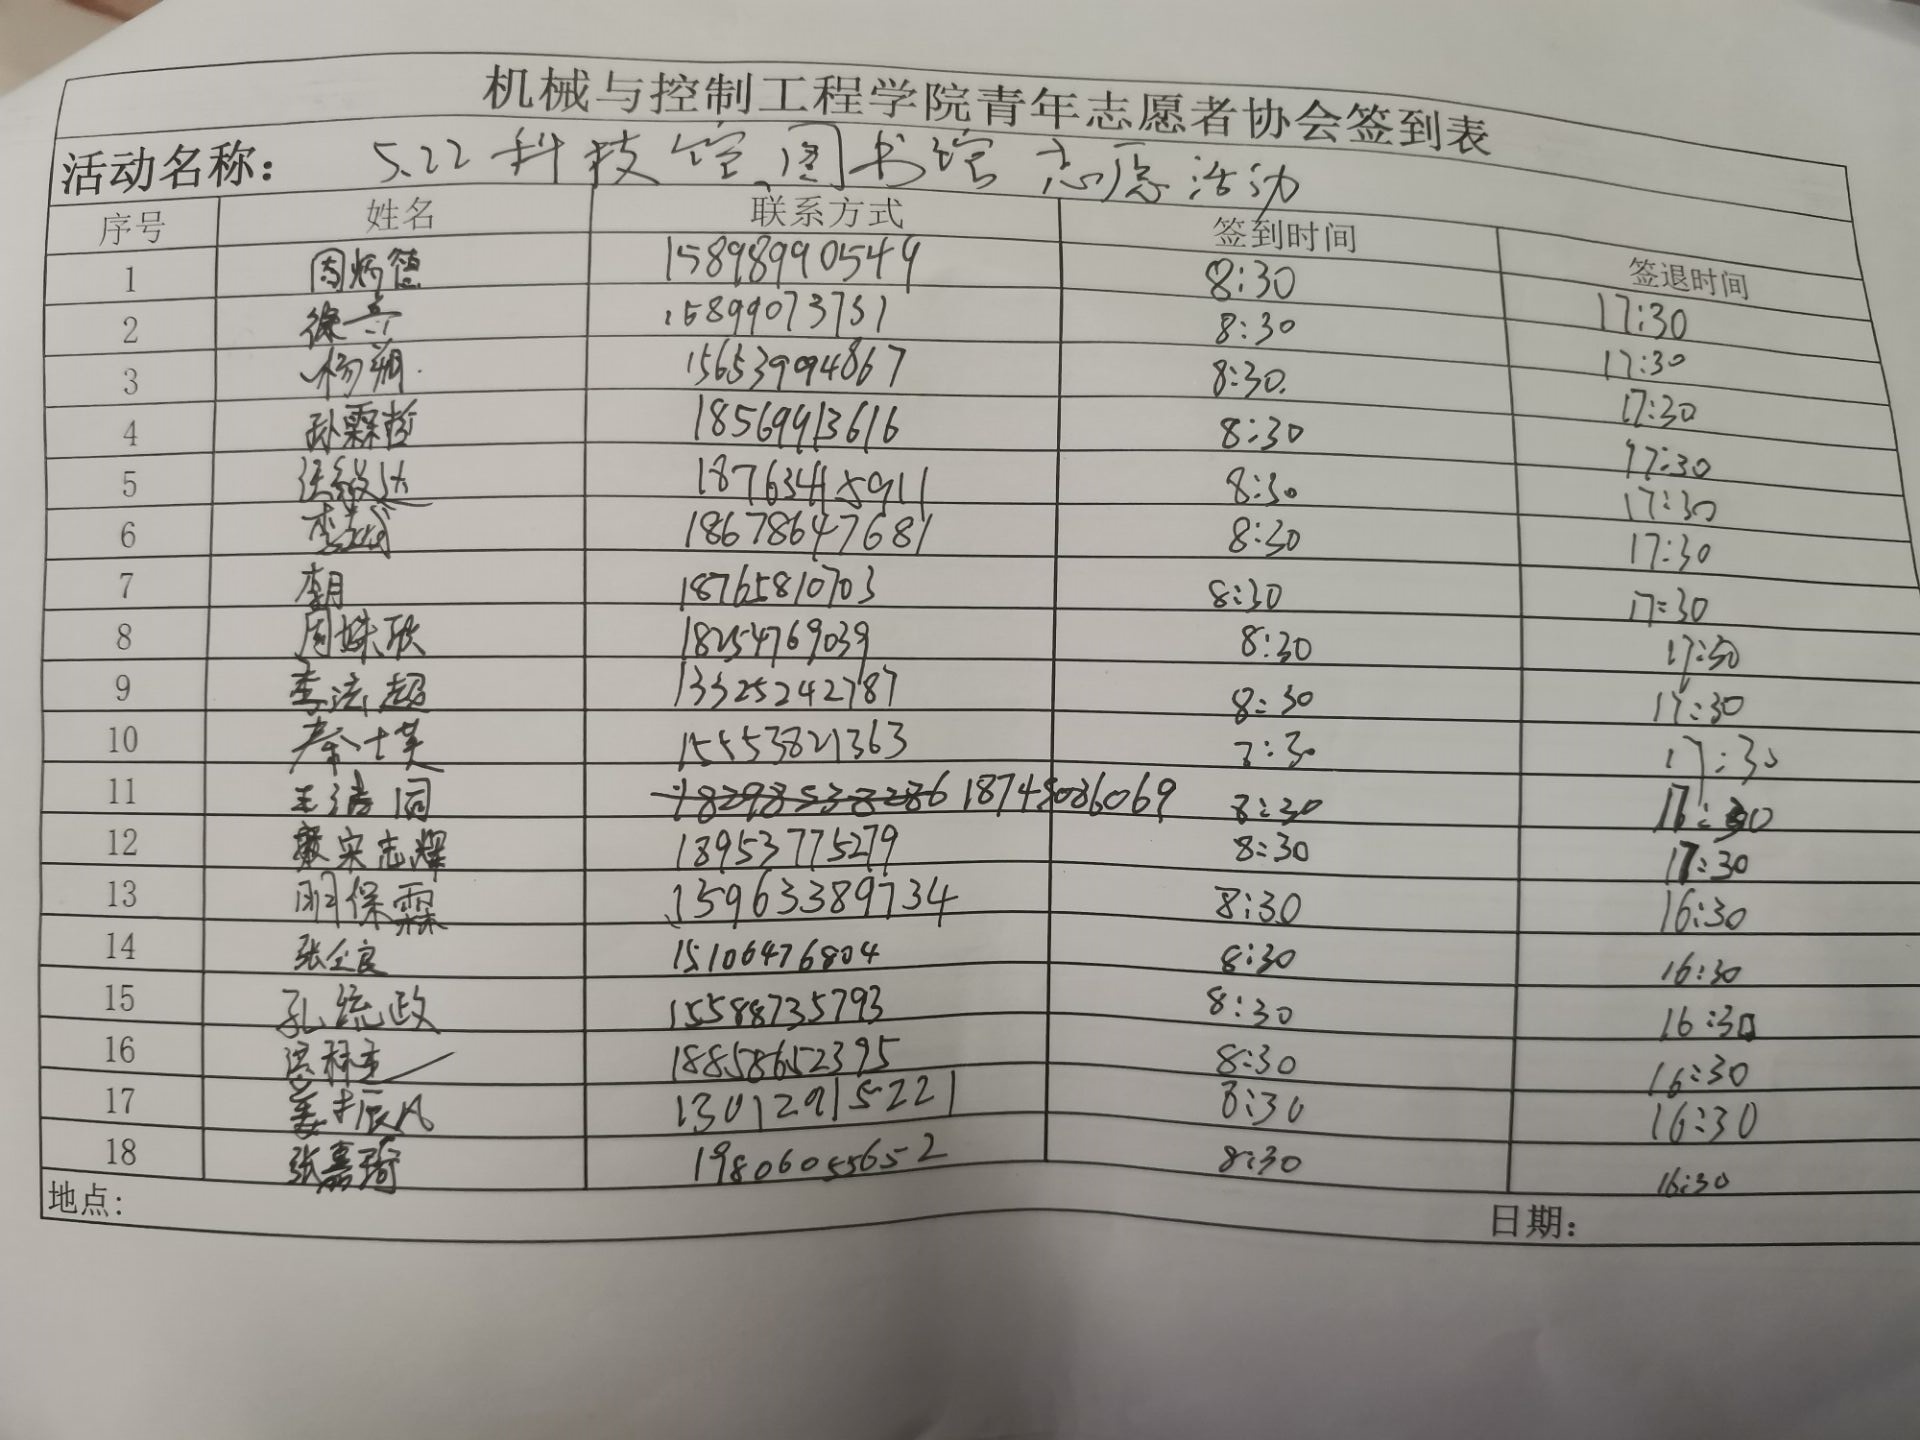 机械与控制工程学院青年志愿者协会签到表
活动名称： 5.22 科技馆、图书馆志愿活动
序号 姓名 联系方式 签到时间 签退时间
1 周炳德 15898990549 8:30 17:30
2 徐 15899073731 8:30 17:30
3 杨朔 15653994867 8:30 17:30
4 孙霖哲 18569413616 8:30 17:30
5 18763415911 8:30 17:30
6 李 18678647681 8:30 17:30
7 18765810703 8:30 17:30
8 周姝欣 18254769039 8:30 17:30
9 李法超 13325242787 8:30 17:30
10 秦士英 15553821363 17:30
11 王 18749036069 8:30
12 宋志辉 18953775279 8:30 17:30
13 保霖 15963389734 8:30 16:30
14 张全良 15106476804 8:30 16:30
15 孔统政 15588735793 8:30 16:30
16 18858652395 8:30 16:30
17 姜振凡 13012915221 8:30 16:30
18 张嘉琦 19806055652 8:30 16:30
地点： 日期：